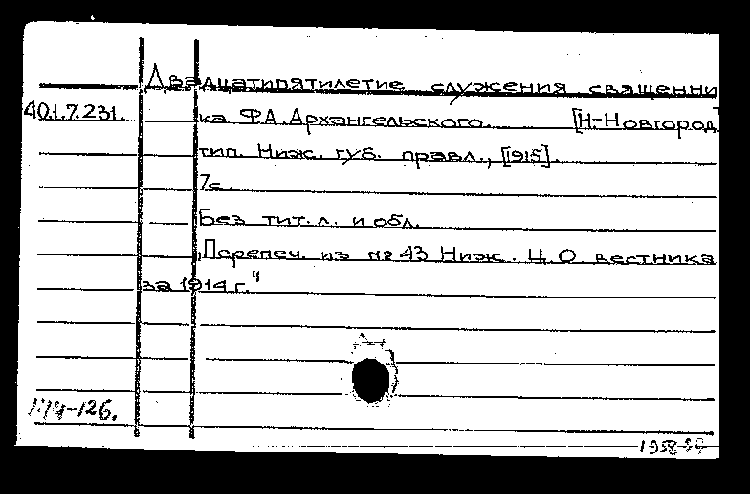 Двадцатипятилетие служения священни
40.1.7.231. ка Ф.А.Архангельского. [Н-Новгород]
тип. Ниж. губ. правл., [1915].
7с.
Без тит. л. и обл.
„Перепеч. из № 43 Ниж. Ц. О вестника
за 1914 г."
-126.